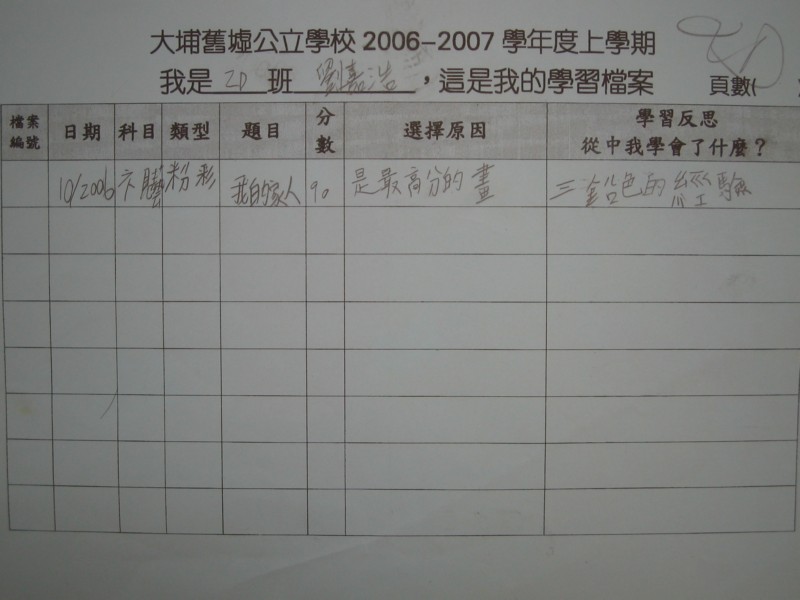 大埔舊墟公立學校 2006–2007 學年度上學期
我是 2D 班 劉嘉浩 ，這是我的學習檔案 頁數(
檔案編號 日期 科目 類型 題目 分數 選擇原因 學習反思 從中我學會了什麼？
10/2006 粉彩 我的家人 90 是最高分的畫 的經驗